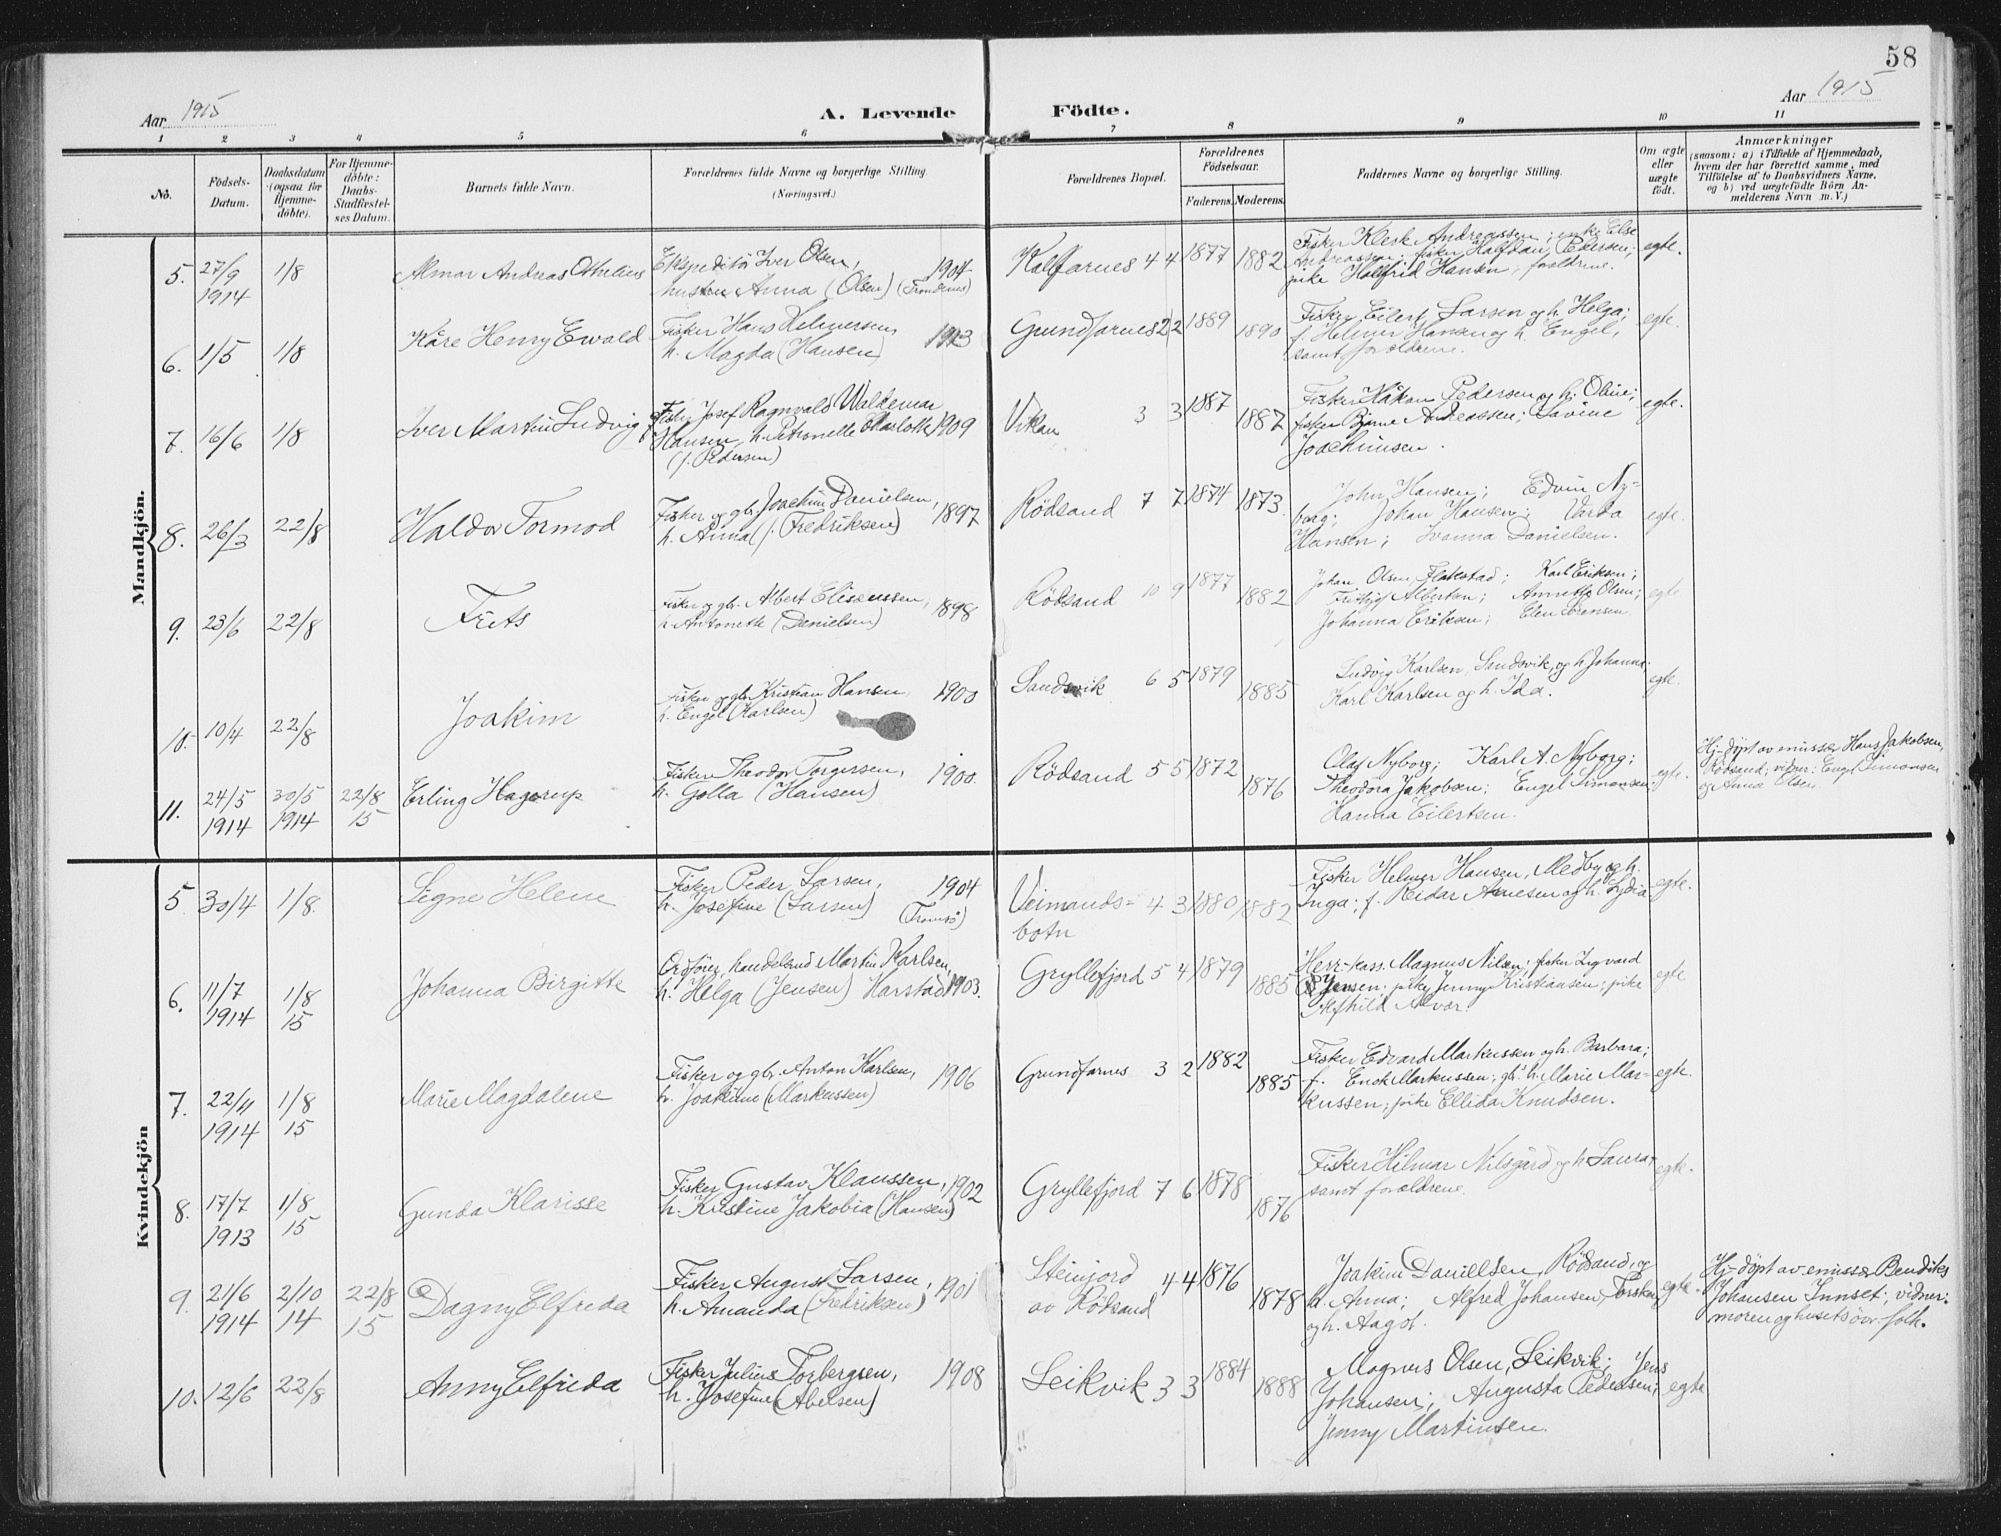 58
Aar 1915
A. Levende Födte.
Aar 1915
1 2 3 4 5 6 7 8 9 10 11
No.
Födsels-
Datum.
Daabsdatum
(ogsaa for
Hjemme-
döbte).
For Hjemme-
döbte:
Daabs-
Stadfæstel-
ses Datum.
Barnets fulde Navn.
Forældrenes fulde Navne og borgerlige Stilling
(Næringsvei.)
Forældrenes Bopæl.
Forældrenes
Födselsaar.
Faderens. Moderens.
Faddernes Navne og borgerlige Stilling.
Om ægte
eller
uægte
født.
Anmærkninger
(saasom: a) i Tilfælde af Hjemmedaab,
hvem der har forrettet samme, med
Tilföielse af to Daabsvidners Navne,
og b) ved uægtefödte Börn An-
melderens Navn m. V.)
Mandkjön.
5. 27/9 1914 1/8 Almar Andreas Othelius
Ekspeditör Iver Olsen, 1904
hustru Anna (Olsen) (Trondenes)
Kalfarnes 4 4 1877 1882
Fisker Klerk Andreassen; enke Else
Andreassen; fisker Halfdan Pedersen;
pike Halfrid Hansen, forældrene.
egte.
6. 1/5 1/8 Kåre Henry Ewald
Fisker Hans Helmersen, 1913
h. Magda (Hansen)
Grundfarnes 2 2 1889 1890
Fisker Eilert Larsen og h. Helga;
f. Helmer Hansen og h. Engel,
samt forældrene.
egte.
7. 16/6 1/8 Iver Martin Ludvig
Fisker Josef Ragnvald Waldemar
Hansen, h. Petronelle Charlotte 1909
(f. Pedersen)
Vikan 3 3 1887 1887
Fisker Håkon Pedersen og h. Oline;
fisker Bjarne Andreassen; Lavine
Joachimsen.
egte.
8. 26/3 22/8 Haldor Tormod
Fisker og gbr. Joachim Danielsen, 1897
h. Anna (f. Fredriksen)
Rödsand 7 7 1874 1873.
John Hansen; Edvin Ny-
borg; Johan Hansen; Varda
Hansen; Ivanna Danielsen.
egte.
9. 23/6 22/8 Frits
Fisker og gbr. Albert Eliseussen, 1898
h. Antonette (Danielsen)
Rödsand 10 9 1877 1882
Johan Olsen, Flakstad; Karl Eriksen;
Fritjof Albertsen; Annette Olsen;
Johanna Eriksen; Elen Sörensen.
egte
10. 10/4 22/8 Joakim
Fisker og gbr. Kristian Hansen, 1900
h. Engel (Karlsen)
Sandsvik 6 5 1879 1885
Ludvig Karlsen, Sandsvik, og h. Johanna;
Karl Karlsen og h. Ida.
egte.
11. 24/5 1914 30/5 1914 22/8 15 Erling Hagerup
Fisker Theodor Torgersen, 1900.
h. Golla (Hansen)
Rödsand 5 5 1872 1876
Olaf Nyborg; Karl A. Nyborg;
Theodora Jakobsen; Engel Simonsen;
Hanna Eilertsen.
egte.
Hj-döpt av emissær Hans Jakobsen,
Rödsand; vidner: Engel Simonsen
og Anna Olsen
Kvindekjön
5 30/4 1/8. Signe Helene
Fisker Peder Larsen, 1904
h. Josefine (Larsen) (Tromsö)
Veimands-
botn 4 3 1880 1882
Fisker Helmer Hansen, Medby og h.
Inga; f. Reidar Arnesen og h. Lydia
egte.
6. 11/7 1914 1/8 15 Johanna Birgitte
Ordförer, handelsmd Martin Karlsen,
h. Helga (Jensen) Harstad 1903.
Gryllefjord 5 4 1879 1885
Herr-kass. Magnus Nilsen; fisker Sigvard
Jensen; pike Jenny Kristiansen; pike
Alfhild Alvar.
egte
7. 22/11 1914 1/8 15 Marie Magdalene
Fisker og gbr. Anton Karlsen, 1906
h. Joakime (Markussen)
Grundfarnes 3 2 1882 1885
Fisker Edvard Markussen og h. Barbara;
f. Enok Markussen; gbr. h. Marie Mar-
kussen; pike Ellida Knudsen.
egte.
8. 17/7 1913 1/8 15 Gunda Klarisse
Fisker Gustav Klaussen, 1902
h. Kristine Jakobia (Hansen)
Gryllefjord 7 6 1878 1876
Fisker Hilmar Nilsgård og h. Laura,
samt forældrene.
egte.
9. 21/6 1914 2/10 14 22/8 15 Dagny Elfrida
Fisker August Larsen, 1901
h. Amanda (Fredriksen)
Steinjord
av Rödsand 4 4 1876 1878
Joakim Daniellsen, Rödsand, og
h. Anna; Alfred Johansen, Torsken
og h. Aagot.
egte.
Hj-döpt av emissær Bendiks
Johansen Innset; vidner:
moren og husets övr. folk.
10. 12/6 22/8 Anny Elfrida
Fisker Julius Torbergsen, 1908
h. Josefine (Abelsen)
Leikvik 3 3 1884 1888
Magnus Olsen, Leikvik; Jens
Johansen; Augusta Pedersen;
Jenny Martinsen.
egte